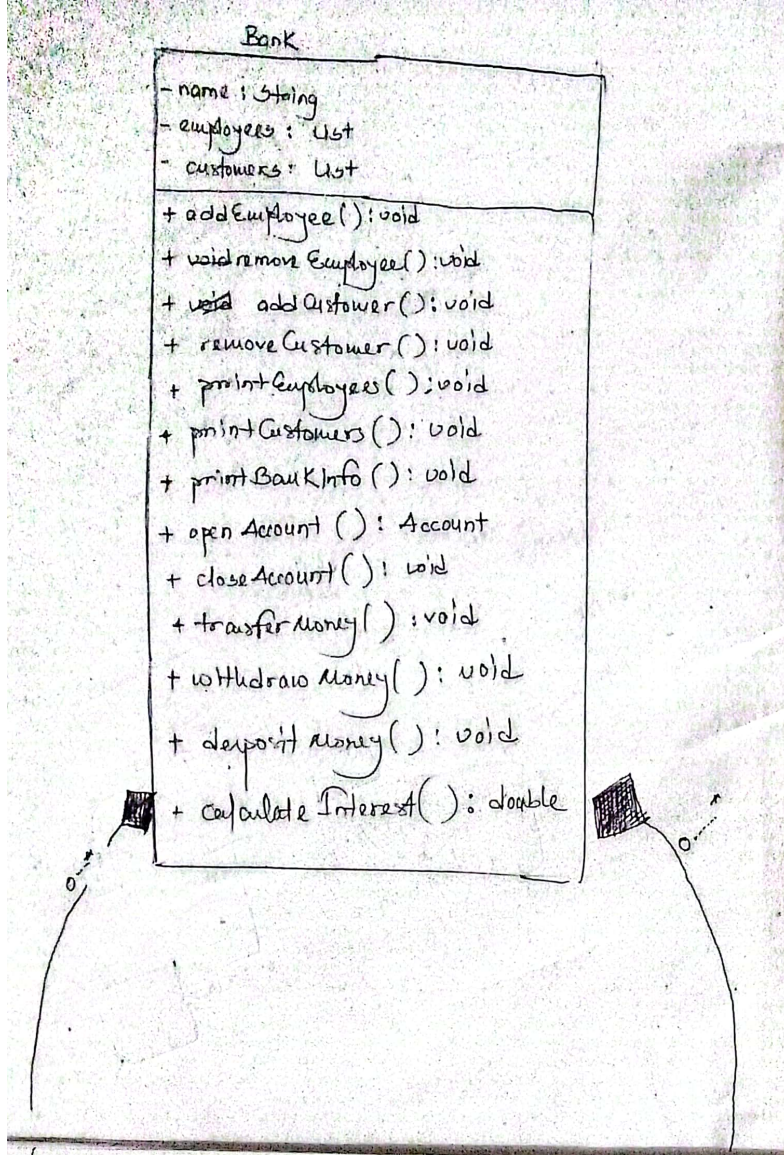 Bank
- name : String
- employees : List
- customers : List
+ addEmployee() : void
+ void remove Employee() : void
+ void addCustomer() : void
+ removeCustomer() : void
+ printEmployees() : void
+ printCustomers() : void
+ printBankInfo() : void
+ open Account () : Account
+ closeAccount() : void
+ transfer Money() : void
+ withdraw Money() : void
+ deposit Money() : void
+ calculate Interest() : double
0....*
0....*